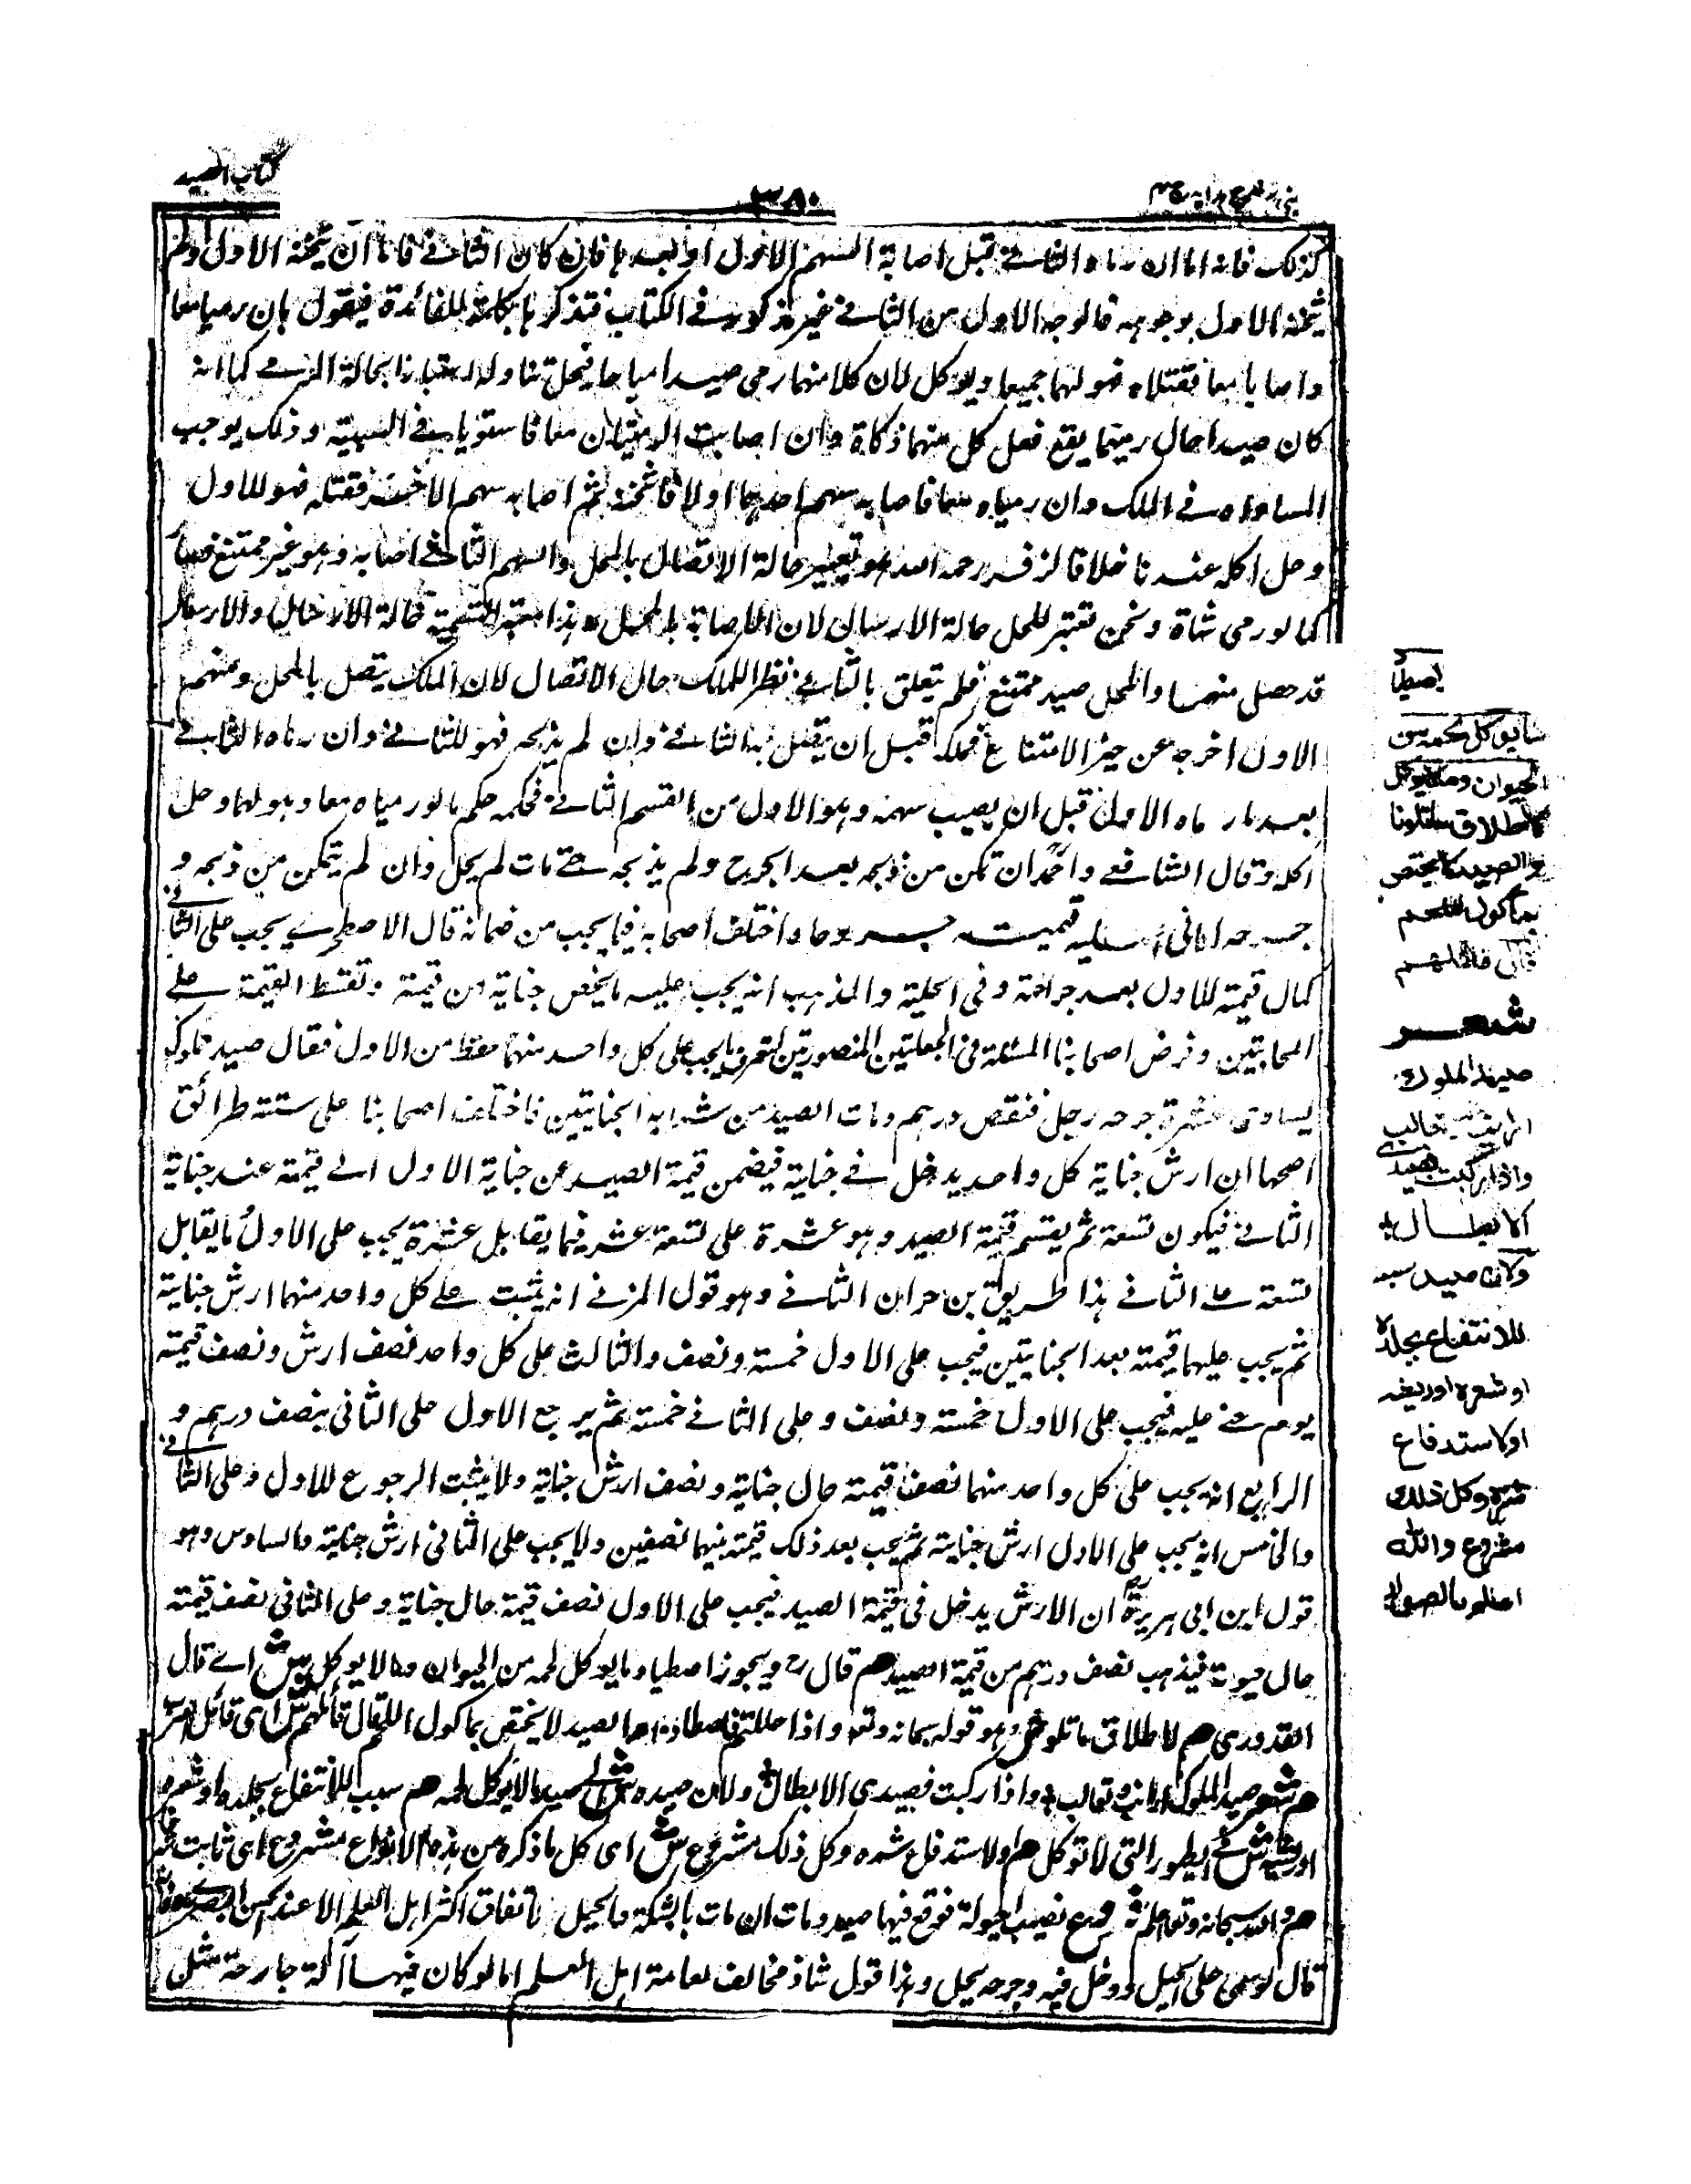 كتاب الصيد
٣٨٠
كذلك فانه اما ان رماه الثاني قبل اصابة السهم الاول او بعدها فان كان الثاني فاما ان يثخنه الاول ولم
يثخنه الاول بوجوهه فالوجه الاول من الثاني غير مذكور في الكتاب فتذكرها تكملة للفائدة فيقول بان رمياه معا
واصاباه معا فقتلاه فهو لهما جميعا ويوكل لان كلا منهما رمى صيدا مباحا فيحل تناوله اعتبارا بحالة الرمي كما انه
كان صيدا حال رميهما يقع فعل كل منهما ذكاة وان اصابت الرميتان معا فاستويا في السببية وذلك يوجب
المساواة في الملك وان رمياه معا فاصابه سهم احدهما اولا فاثخنه ثم اصابه سهم الاخر فقتله فهو للاول
وحل اكله عندنا خلافا لزفر رحمه الله هو تعتبر حالة الاتصال بالمحل والسهم الثاني اصابه وهو غير ممتنع فصار
كما لو رمى شاة ونحن نعتبر للحل حالة الارسال لان الاصابة بالمحل
قد حصل منهما والمحل صيد ممتنع فلم يتعلق بالثاني نظرا للملك حال الاتصال لان الملك يتصل بالمحل وسهم
الاول اخرجه عن حيز الامتناع فملكه قبل ان يقتل به الثاني وان لم يذبحه فهو للثاني وان رماه الثاني
بعد ما رماه الاول قبل ان يصيب سهمه وهو الاول من القسم الثاني فحكمه حكم ما لو رمياه معا وهو لهما وحل
اكله وقال الشافعي واحمد ان تمكن من ذبحه بعد الجرح ولم يذبحه حتى مات لم يحل وان لم يتمكن من ذبحه و
جرحه الثاني عليه قيمته مجروحا واختلف اصحابه فيما يجب من ضمانه قال الاصطخري يجب على الثاني
كمال قيمته للاول بعد جراحته وفي الحلية والمذهب انه يجب عليه ما يخص جناية من قيمة وتقسط القيمة على
الجانيتين وفرض اصحابنا المسئلة في الجعلتين المنصورتين لتعرف ما يجب على كل واحد منهما حفظ من الاول فقال صيد مملوك
يساوي عشرة جرحه رجل فنقص درهم ومات الصيد من سراية الجنايتين فاختلف اصحابنا على ستة طرائق
اصحها ان ارش جناية كل واحد يدخل في جناية فيضمن قيمة الصيد عن جناية الاول الى قيمته عند جناية
الثاني فيكون تسعة ثم يقسم قيمة الصيد وهو عشرة على تسعة عشر فيما يقابل عشرة يجب على الاول ما يقابل
تسعة على الثاني هذا طريق بن حران الثاني وهو قول المزني انه يثبت على كل واحد منهما ارش جناية
ثم يجب عليهما قيمته بعد الجنايتين فيجب على الاول خمسة ونصف والثالث على كل واحد نصف ارش ونصف قيمته
يوم جنى عليه فيجب على الاول خمسة ونصف وعلى الثاني خمسة ثم يرجع الاول على الثاني بنصف درهم و
الرابع انه يجب على كل واحد منهما نصف قيمته حال جناية ونصف ارش جناية ولا يثبت الرجوع للاول وعلى الثاني
والخامس انه يجب على الاول ارش جناية ثم يجب بعد ذلك قيمته بينهما نصفين ولا يجب على الثاني ارش جناية والسادس وهو
قول ابن ابي هريرة ان الارش يدخل في قيمة الصيد فيجب على الاول نصف قيمة حال جناية وعلى الثاني نصف قيمته
حال حيوته فيذهب نصف درهم من قيمة الصيد هم قال رح ويجوز اصطياد ما يوكل لحمه من الحيوان وما لا يوكل ش اي قال
القدوري هم لاطلاق ما تلونا ش وهو قوله سبحانه وتعالى واذا حللتم فاصطادوا هم والصيد لا يختص بماكول اللحم قال قائلهم ش اي قائل العرب
هم شعر صيد الملوك ارانب وثعالب واذا ركبت فصيدي الابطال ولان صيده ش اي صيد ما لا يوكل لحمه هم سبب للانتفاع بجلده او شعره
او ريشه ش في الطيور التي لا توكل هم ولاستدفاع شره وكل ذلك مشروع ش اي كل ما ذكره من هذه الانواع مشروع اي ثابت
هم والله سبحانه وتعالى اعلم ش فرع نصب احبولة فوقع فيها صيد ومات ان مات بالشبكة والحبل باتفاق اكثر اهل العلم الا عند الحسن البصري
قال لو سمى على الحبل ودخل فيه وجرحه يحل وهذا قول شاذ مخالف لعامة اهل العلم اما لو كان فيها آلة جارحة مثل
اصطياد
ما يوكل لحمه من
الحيوان وما لا يوكل
لاطلاق ما تلونا
والصيد لا يختص
بماكول اللحم
قال قائلهم
شعر
صيد الملوك
ارانب وثعالب
واذا ركبت فصيدي
الابطال
ولان صيده سبب
للانتفاع بجلده
او شعره او ريشه
او لاستدفاع
شره وكل ذلك
مشروع والله
اعلم بالصواب